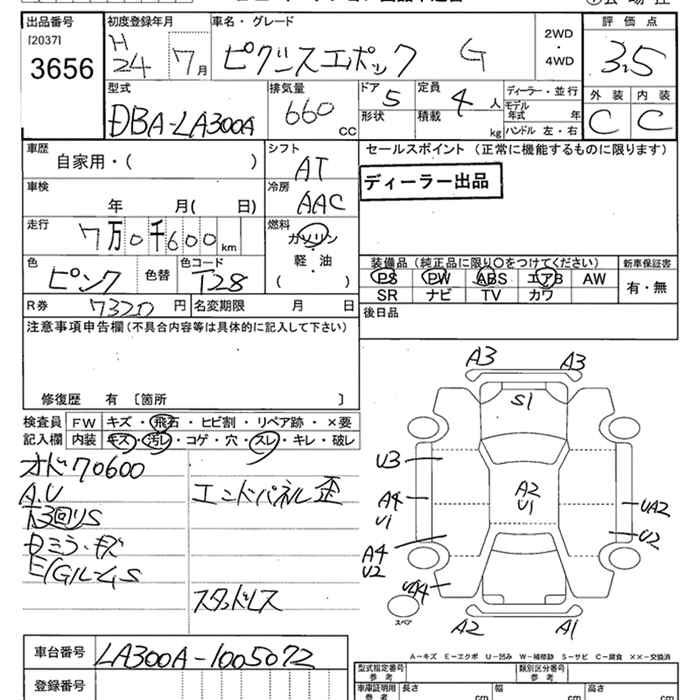 出品番号 初度登録年月 車名・グレード 評価点
[2037] H
3656 24 7月 ピクシスエポック G 2WD・4WD 3.5
型式 排気量 ドア 定員 ディーラー・並行 外装 内装
DBA-LA300A 660 CC 5 4人 モデル年式 年 C C
形状 積載 kg ハンドル 左・右
車歴 シフト セールスポイント (正常に機能するものに限ります)
自家用・( ) AT
ディーラー出品
車検 冷房
年 月( 日) AAC
走行 燃料
7万0千600km ガソリン
軽・油
( )
装備品(純正品に限り○をつけてください) 新車保証書
色 色替 色コード PS PW ABS エアB AW 有・無
ピンク T28 SR ナビ TV カワ
R券 7320円 名変期限 月 日 後日品
注意事項申告欄(不具合内容等は具体的に記入して下さい)
修復歴 有 〔箇所 〕
検査員 FW キズ・飛石・ヒビ割・リペア跡・×要
記入欄 内装 キズ・汚レ・コゲ・穴・スレ・キレ・破レ
オド70600
A.U
エンドパネル歪
Dミラーキズ
スタッドレス
A3 A3
S1
U3
A2
U1
A4
U1
UA2
U2
A4
U2
スペア
A2 A1
A-キズ E-エクボ U-凹み W-補修跡 S-サビ C-腐食 ××-交換済
車台番号 LA300A-1005072
登録番号
型式指定番号 参考 類別区分番号 参考
車庫証明用 参考 長さ cm 幅 cm 高さ cm